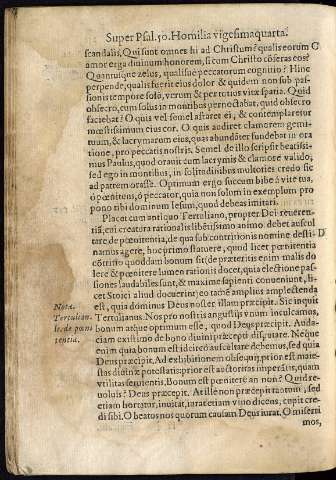 Super Psal. 50. Homilia vigesimaquarta.
scandalis, Qui sunt omnes hi ad Christum? qualis eorum C
amor erga diuinum honorem, si cum Christo cõferas eos?
Quantusque zelus, qualisue peccatorum cognitio? Hinc
perpende, qualis fuerit eius dolor & quidem non sub pas-
sionis tempore solũ, verum & per totius vitæ spatia. Quid
obsecro, cum solus in montibus pernoctabat, quid obsecro
faciebat? O quis vel semel astaret ei, & contemplaretur
mœstissimum eius cor. O quis audiret clamorem gemi-
tuum, & lacrymarum eius, quas abundãter fundebat in ora
tione, pro peccatis nostris. Semel de illo scripsit beatissi-
mus Paulus, quod orauit cum lacrymis & clamore valido;
sed ego in montibus, in solitudinibus multories credo sic
ad patrem orasse. Optimum ergo succum bibe à vite tua,
ô pœnitens, ô peccator, quia non solum in exemplum pro
pono dominum Iesum, quod debeas imitari.
Placet cum antiquo Tertuliano, propter Dei reueren-
tiã, cui creatura rationalis libẽtissimo animo debet auscul
tare de pœnitentia, de qua sub contritionis nomine desti- D
namus agere, huc primo statuere, quod licet pœnitentia
cõtritio quoddam bonum sit (de præteritis enim malis do
lere & pœnitere lumen rationis docet, quia electione pas-
siones laudabiles sunt, & maxime sapienti conueniunt, li-
cet Stoici aliud docuerint) eo tamẽ amplius amplectenda
Nota. est, quia dominus Deus noster illam præcipit. Sic inquit
Tertulian. Tertulianus. Nos pro nostris angustijs vnum inculcamus,
lus de pœni bonum atque optimum esse, quod Deus præcipit. Auda-
tentia. ciam existimo de bono diuini præcepti disputare. Neque
enim quia bonum est idcirco auscultare debemus, sed quia
Deus præcipit. Ad exhibitionem obsequij, prior est maie-
stas diuinæ potestatis: prior est auctoritas imperãtis, quam
vtilitas seruientis. Bonum est pœnitere an non? Quid re-
uoluis? Deus præcepit. At ille non præcepit tantum, sed
etiam hortatur, inuitat, iurat etiam viuo dicens, cupit cre-
di sibi. O beatos nos quorum causam Deus iurat. O miserri
mos,